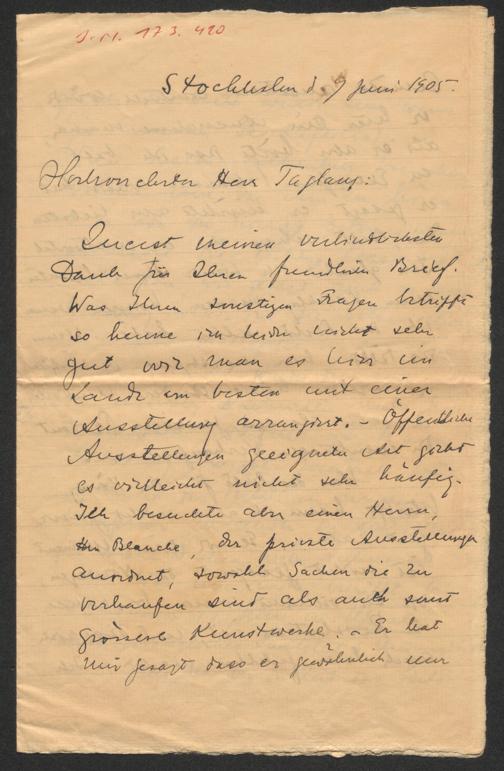 I.N. 173.490
Stockholm d. 9 Juni 1905.
Hochverehrter Herr Taglang.
Zuerst meinen verbindlichsten
Dank für Ihren freundlichen Brief.
Was Ihren sonstigen Fragen betrifft
so kenne ich leider nicht sehr
gut wie man es hier im
Lande am besten mit einer
Ausstellung arrangirt. – Öffentliche
Ausstellungen geeigneter Art giebt
es vielleicht nicht sehr häufig.
Ich besuchte aber einen Herrn,
Hrn Blanche, der private Ausstellungen
anordnet, sowohl Sachen die zu
verkaufen sind als auch sonst
grössere Kunstwerke. – Er hat
mir gesagt dass er gewöhnlich nur